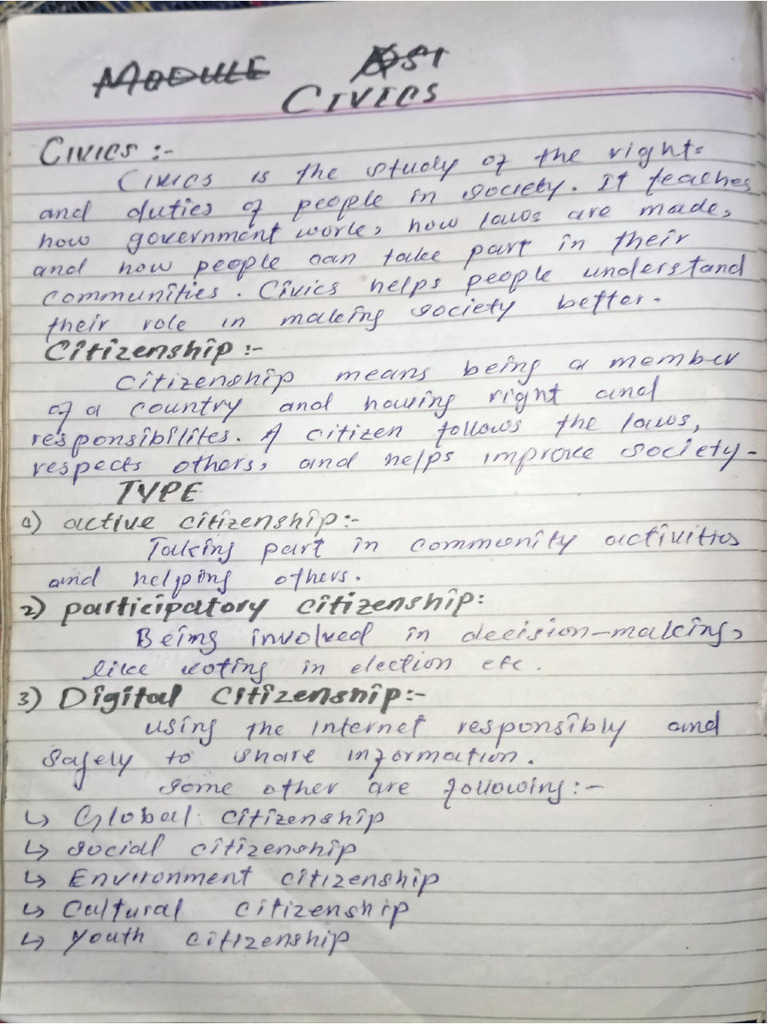 MODULE
CIVICS
CIVICS :-
Civics is the study of the rights
and duties of people in society. It teaches
how government work, how laws are made,
and how people can take part in their
communities. Civics helps people understand
their role in making society better.
Citizenship :-
Citizenship means being a member
of a country and having right and
responsibilites. A citizen follows the laws,
respects others, and helps improve society-
TYPE
1) active citizenship:-
Taking part in community activities
and helping others.
2) participatory citizenship:
Being involved in decision-making,
like voting in election etc.
3) Digital citizenship:-
using the internet responsibly and
safely to share information.
Some other are following:-
↳ Global citizenship
↳ social citizenship
↳ Environment citizenship
↳ Cultural citizenship
↳ Youth citizenship